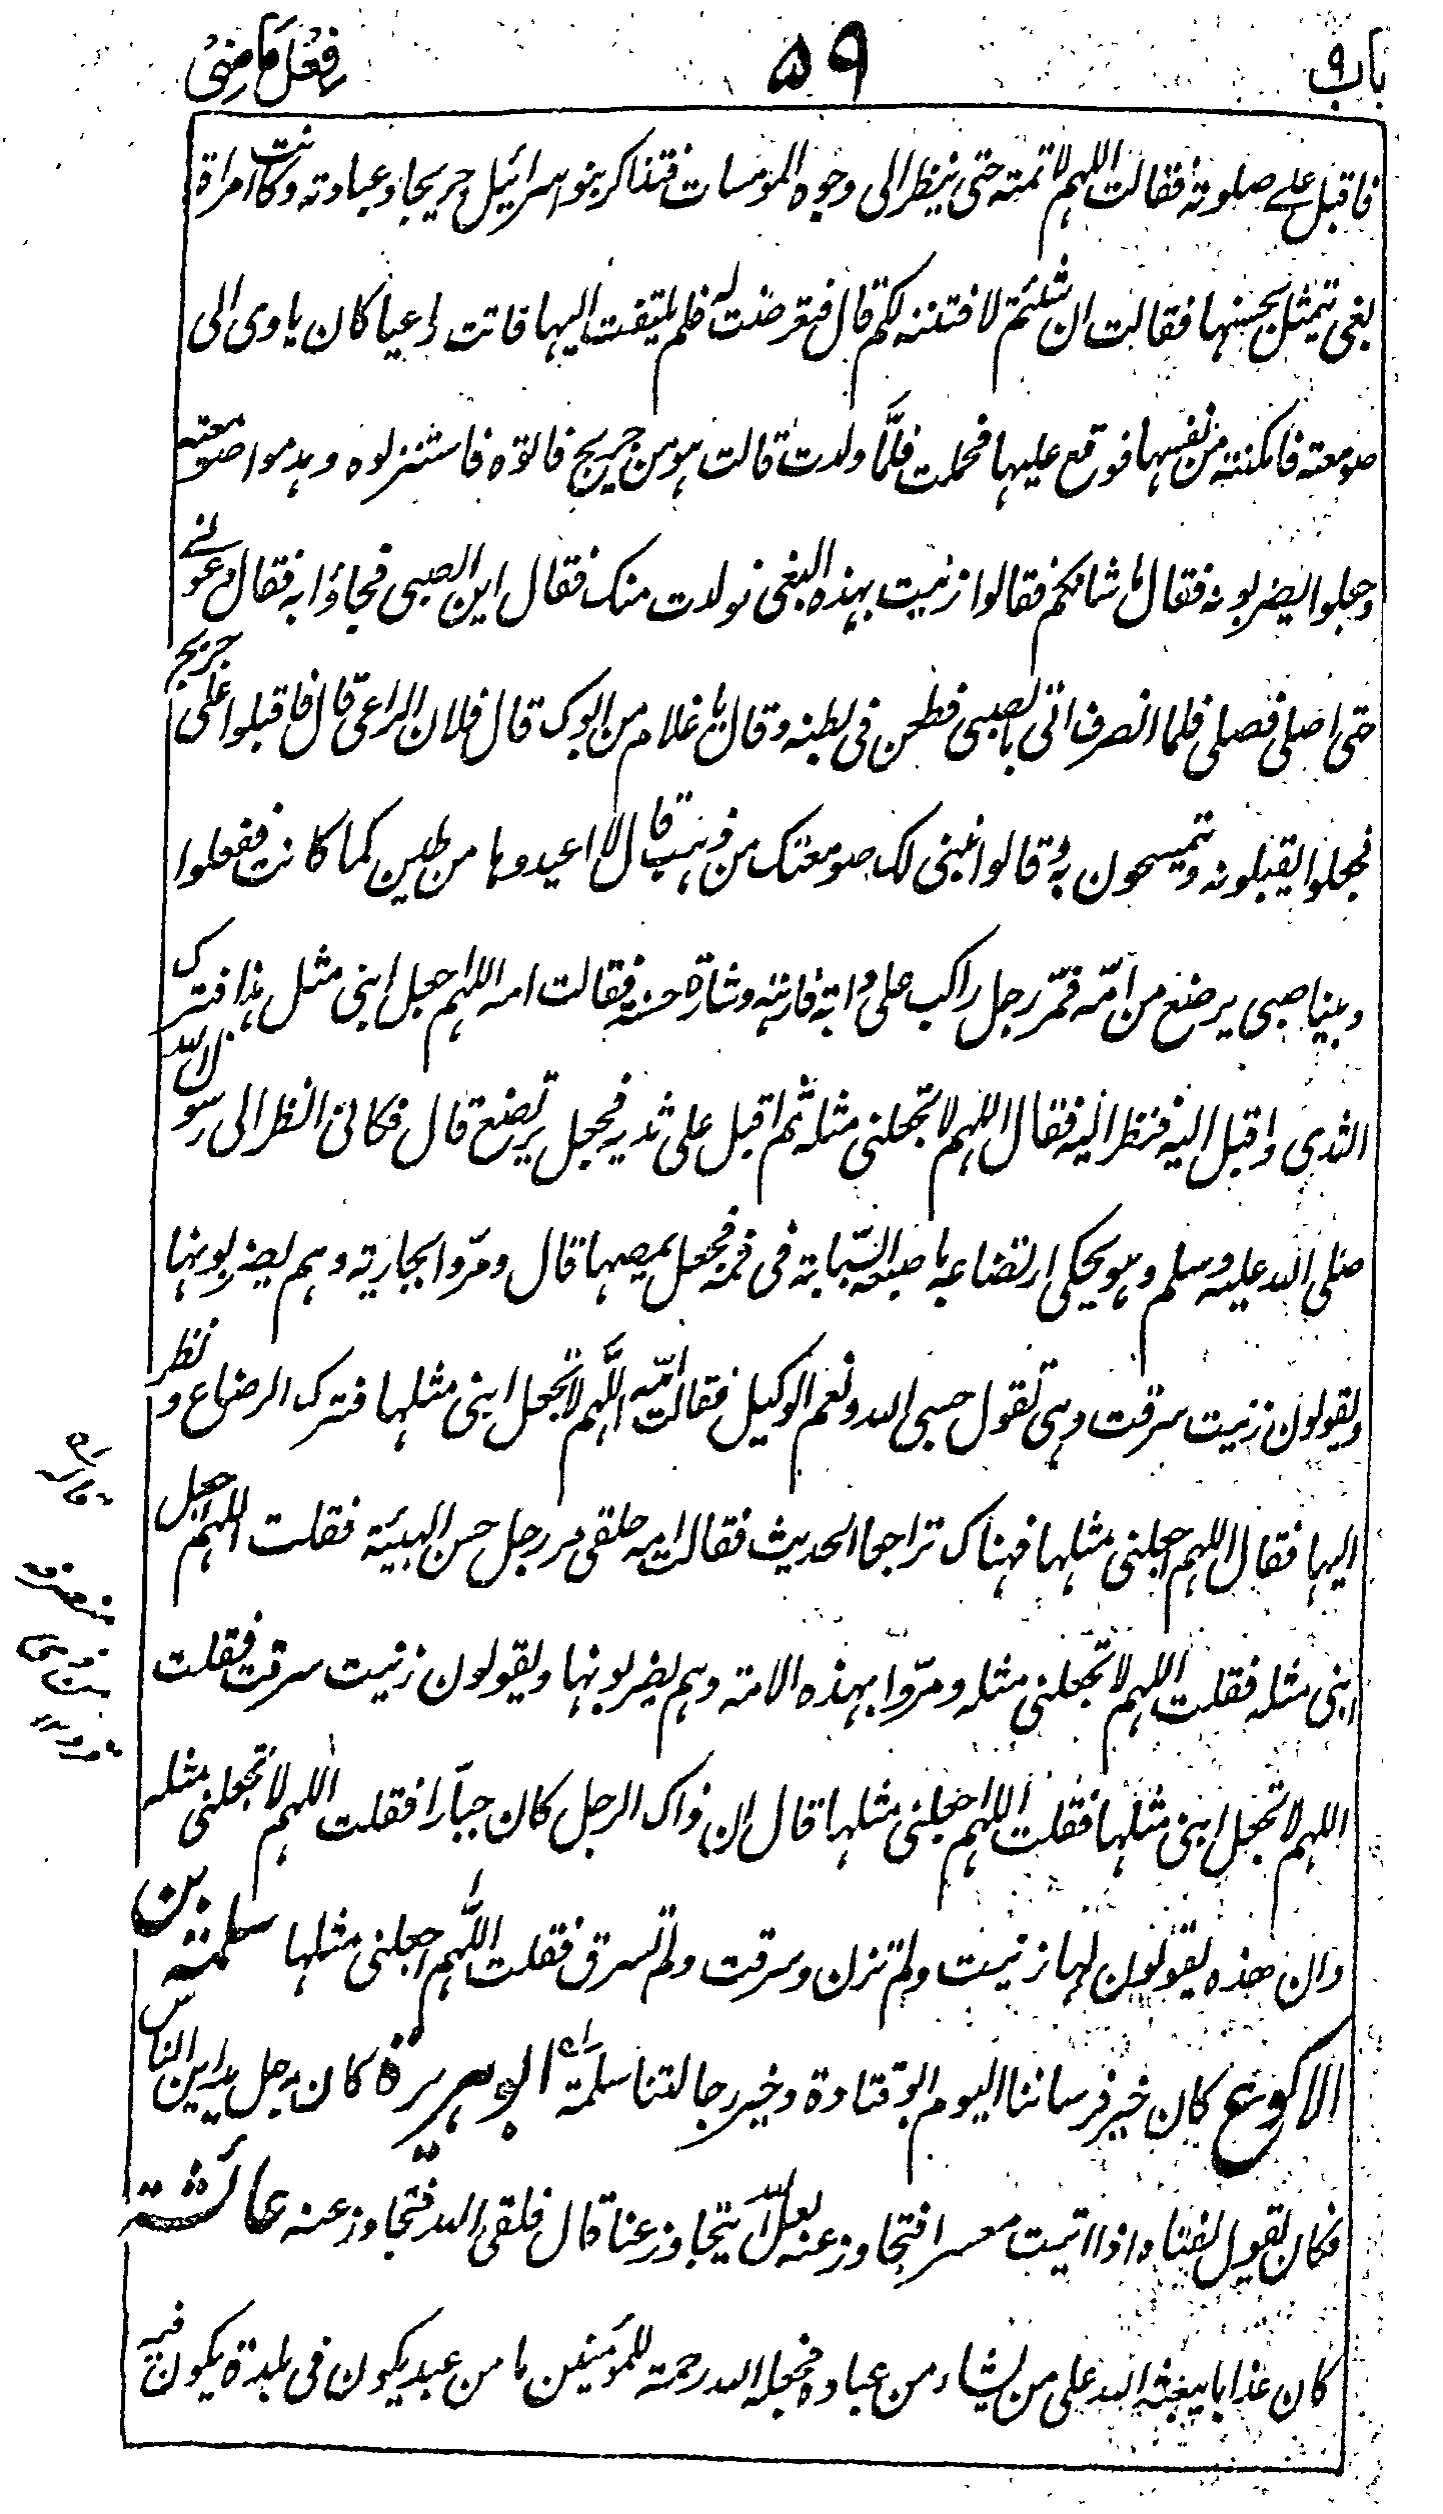 باب ٩ ٥٩ فِعْل مَاضِىْ
فاقبل على صلوته فقالت اللهم لا تمته حتى ينظر الى وجوه المؤمسات فتذاكر بنو اسرائيل جريجا وعبادته وكانت امراة
بغى يتمثل بحسنها فقالت ان شئتم لافتننه لكم قال فتعرضت له فلم يلتفت اليها فاتت راعيا كان ياوى الى
صومعته فامكنته من نفسها فوقع عليها فحملت فلمّا ولدت قالت هو من جريج فاتوه فاستنزلوه وهدموا صومعته
وجعلوا يضربونه فقال ما شانكم فقالوا زنيت بهذه البغى فولدت منك فقال اين الصبى فجاؤا به فقال دعونى
حتى اصلى فصلى فلما انصرف اتى بالصبى فطعن فى بطنه وقال يا غلام من ابوك قال فلان الراعى قال فاقبلوا على جريج
فجعلوا يقبلونه ويتمسحون به وقالوا نبنى لك صومعتك من ذهب قال لا اعيدوها من طين كما كانت ففعلوا
وبينا صبى يرضع من امّه فمرّ رجل راكب على دابة فارهة وشارة حسنة فقالت امه اللهم اجعل ابنى مثل هذا فترك
الثدى واقبل اليه فنظر اليه فقال اللهم لا تجعلنى مثله ثم اقبل على ثديه فجعل يرتضع قال فكانى انظر الى رسول الله
صلى الله عليه وسلم وهو يحكى ارتضاعه باصبعه السّبابة فى فمه فجعل يمصها قال ومرّوا بجارية وهم يضربونها
ويقولون زنيت سرقت وهى تقول حسبى الله ونعم الوكيل فقالت امّه اللّهم لا تجعل ابنى مثلها فترك الرضاع ونظر
اليها فقال اللهم اجعلنى مثلها فهناك تراجعا الحديث فقالت امه حلقى مر رجل حسن الهيئة فقلت اللهم اجعل
ابنى مثله فقلت اللهم لا تجعلنى مثله ومرّوا بهذه الامة وهم يضربونها ويقولون زنيت سرقت فقلت
اللهم لا تجعل ابنى مثلها فقلت اللهم اجعلنى مثلها قال ان ذاك الرجل كان جبّارا فقلت اللهم لا تجعلنى مثله
وان هذه يقولون لها زنيت ولم تزن وسرقت ولم تسرق فقلت اللّهم اجعلنى مثلها سلمة بن
الاكوع كان خير فرساننا اليوم ابو قتادة وخير رجالتنا سلمة ابو هريرة كان رجل يداين الناس
فكان يقول لفتاه اذا اتيت معسرا فتجاوز عنه لعل الله يتجاوز عنا قال فلقى الله فتجاوز عنه عائشة
كان عذابا يبعثه الله على من يشاء من عباده فجعله الله رحمة للمؤمنين ما من عبد يكون فى بلدة يكون فيه